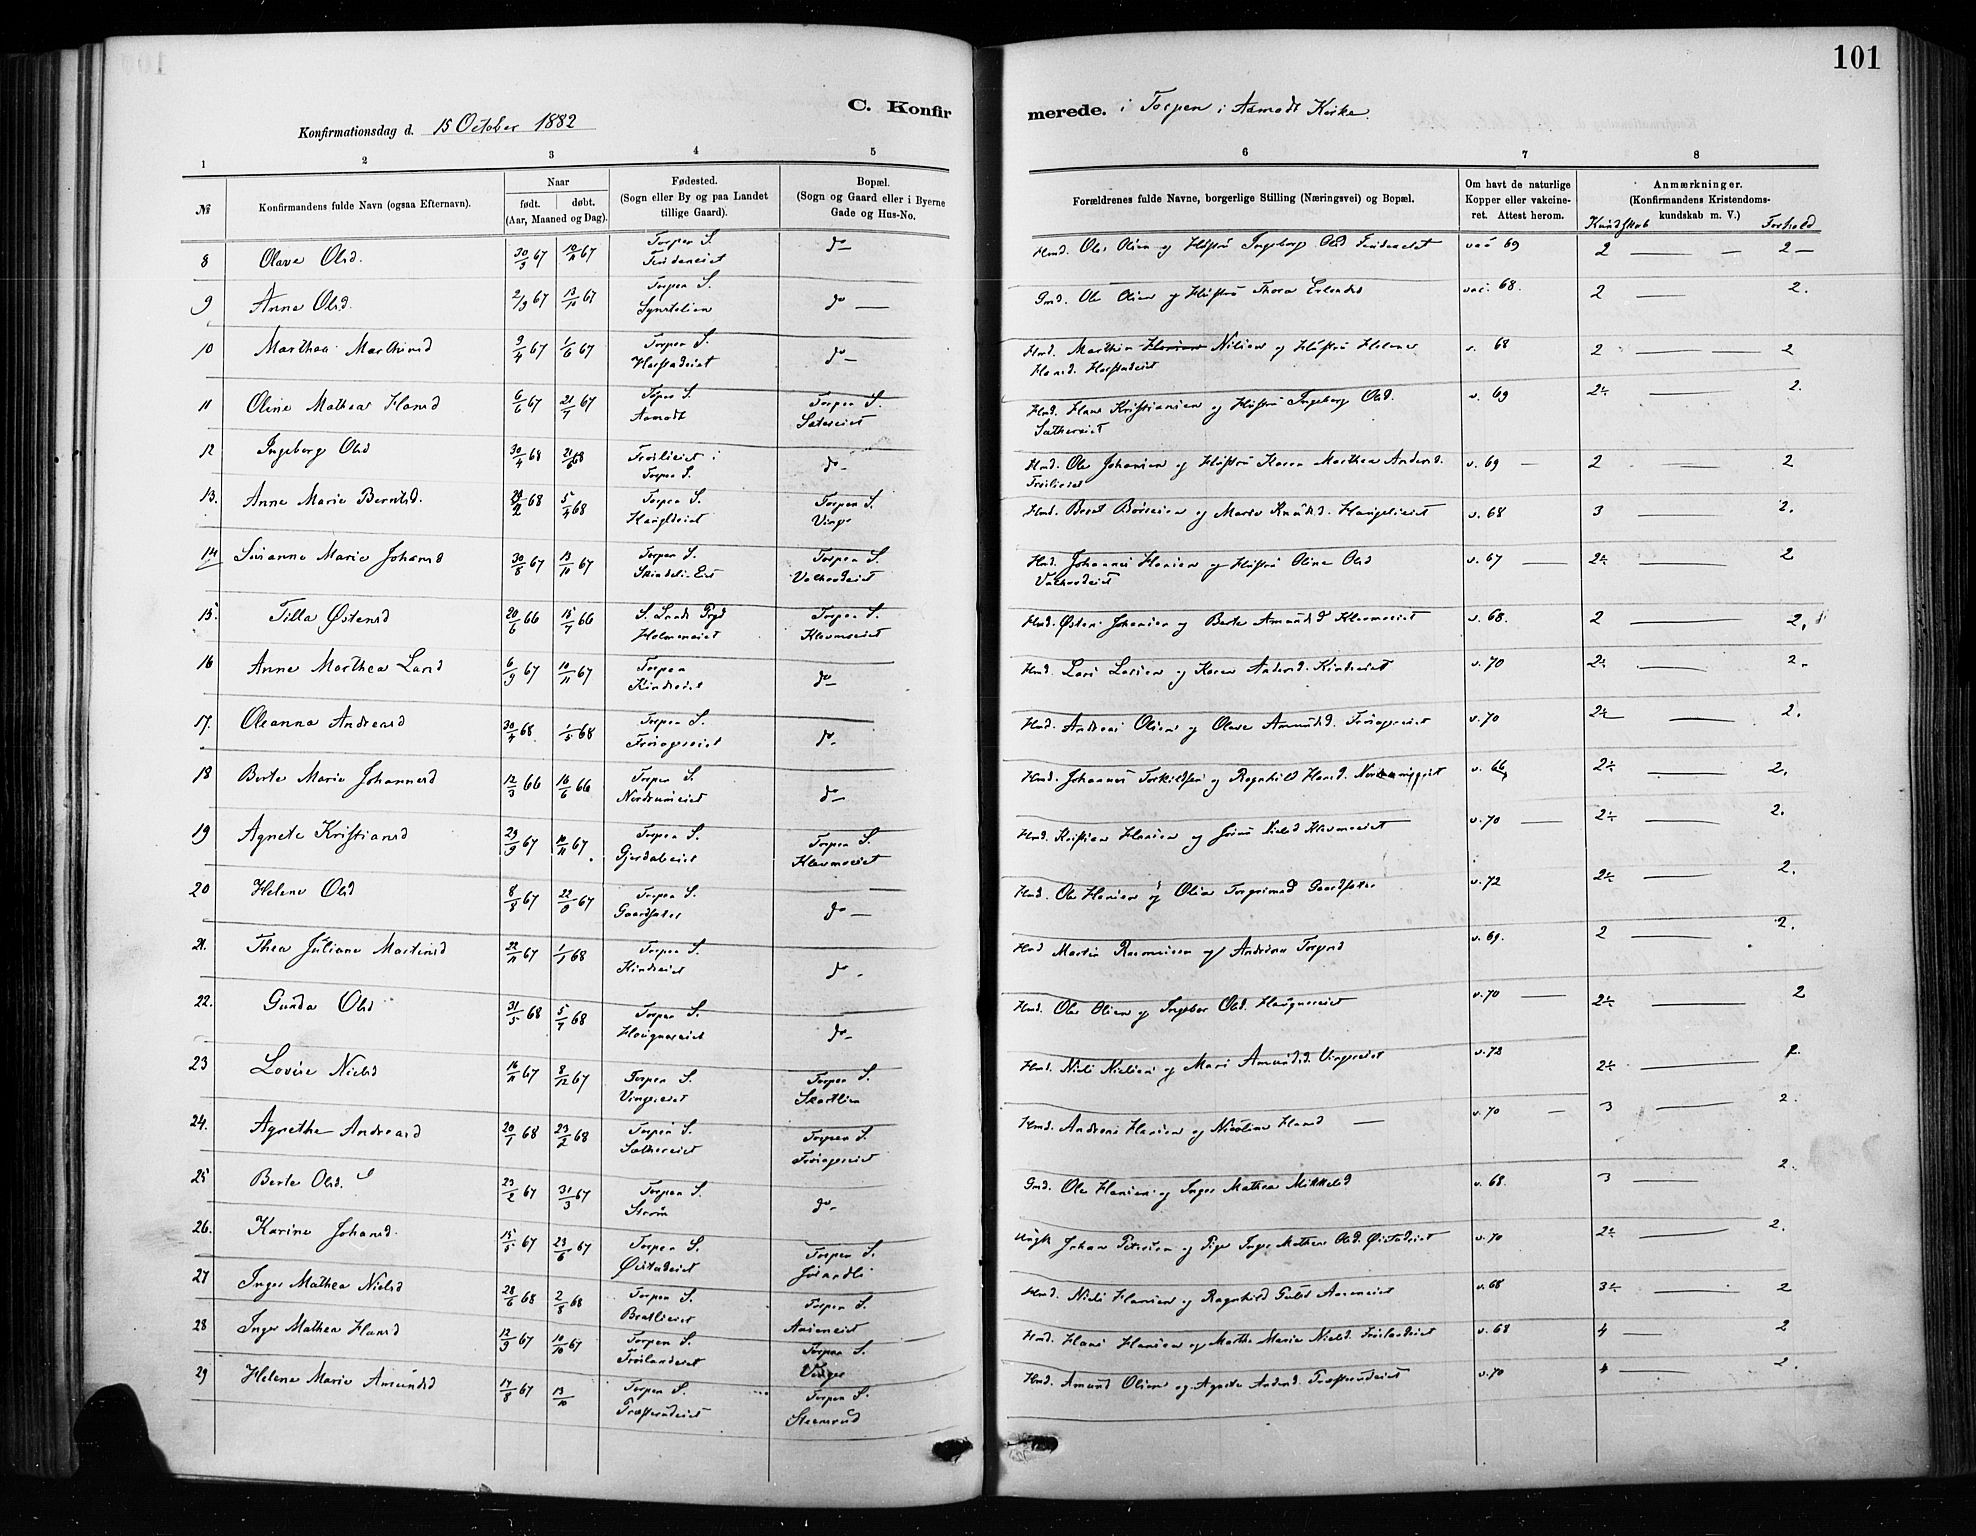 101
C. Konfirmerede. i Torpen i Aamodt Kirke.
Konfirmationsdag d. 15 October 1882
1 2 3 4 5 6 7 8
№ Konfirmandens fulde Navn (ogsaa Efternavn). Naar født. døbt. (Aar, Maaned og Dag). Fødested. (Sogn eller By og paa Landet tillige Gaard). Bopæl. (Sogn og Gaard eller i Byerne Gade og Hus-No. Forældrenes fulde Navne, borgerlige Stilling (Næringsvei) og Bopæl. Om havt de naturlige Kopper eller vakcineret. Attest herom. Anmærkninger. (Konfirmandens Kristendomskundskab m. V.) Kundskab Forhold
8 Olave Olsd. 30/9 67 10/11 67 Torpen S. do Hmd. Ole Olsen og Hustru Ingeborg Olsd vac 69 2 2
9 Anne Olsd. 2/9 67 13/10 67 Torpen S. do Gmd. Ole Olsen og Hustru Thora Erlandsd vac. 68. 2 2.
10 Marthea Marthinsd 9/4 67 1/6 67 Torpen S. do Hmd. Marthin Nilsen og Hustru Helene Hansd. v. 68 2 2
11 Oline Mathea Hansd 6/6 67 21/7 67 Torpen S. Aamodt Torpen S. Sætereiet Hmd. Hans Kristiansen og Hustru Ingeborg Olsd. Sæthereiet v. 69 2÷ 2.
12 Ingeborg Olsd 30/4 68 21/6 68 Frøilieiet i Torpen S. do Hmd. Ole Johansen og Hustru Karen Marthea Andersd. Frøilieiet v. 69 2 2
13. Anne Marie Berntsd. 68 5/4 68 Torpen S. Torpen S. Vinge Hmd. Bernt og Marie Knudsd. v. 68 3 2.
14 Susanne Marie Johansd 30/8 67 13/10 67 Torpen S. Skindeli Eie Torpen S. Hmd. Johannes Hansen og Hustru Oline Olsd v. 67 2÷ 2
15. Tilla Østensd 20/6 66 15/7 66 S. Lands Prgd Torpen S. Klevmoeiet Hmd. Østen Johansen og Berte Amundsd Klevmoeiet v. 68. 2 2.
16 Anne Marthea Larsd 6/9 67 10/11 67 Torpen Kindseiet do Hmd. Lars Larsen og Karen Andersd. Kindseiet v. 70 2÷ 2.
17. Oleanna Andreasd 30/4 68 1/5 68 Torpen S. Frøisgseiet do Hmd. Andreas Olsen og Olave Amundsd. v. 70 2÷ 2.
18 Berte Marie Johannesd 12/3 66 16/6 66 Torpen S. Nordrumeiet do Hmd. Johannes Torkildsen og Ragnhild Hansd. v. 66 2÷ 2.
19 Agnete Kristiansd 29/9 67 10/11 67. Torpen S. Gjerdaleiet Torpen S. Klevmoeiet Hmd. Kristian Hansen og Nielsd Klevmoeiet v. 70 2÷ 2.
20 Helene Olsd 8/8 67 22/9 67 Torpen S. Gaardsæter do Hmd. Ole Hansen og Olia Torgrimsd Gaardsæter v. 72 2÷ 2.
21. Thea Juliane Martinsd 22/11 67 1/1 68 Torpen S. Kindseiet do Hmd Martin Rasmussen og Andrine v. 69. 2 2.
22. Gunda Olsd 31/5 68 5/7 68 Torpen S. Haugnerseiet do Hmd. Ole Olsen og Ingebor Olsd. Haugnerseiet v. 70 2÷ 2
23 Lovise Nielsd 16/11 67 8/12 67 Torpen S. Vingereiet Torpen S. Skartlien Hmd. Niels Nielsen og Mari Amundsd. Vingereiet v. 72 2÷ 2.
24. Agnethe Andreasd 20/1 68 23/2 68 Torpen S. Sæthereiet Torpen S. Hmd. Andreas Hansen og Nicoline Hansd v. 70 3 2.
25 Berte Olsd. 23/2 67 31/3 67 Torpen S. Strøm do Gmd. Ole Hansen og Inger Mathea Mikkelsd v. 68. 3 2.
26. Karine Johansd. 15/5 67 23/6 67 Torpen S. Øistadeiet Torpen S. Ungk Johan Petersen og Pige Inger Mathea Olsd. Øistadeiet v. 70 2÷ 2.
27 Inger Mathea Nielsd 28/6 68 2/8 68 Torpen S. Bratlieiet Torpen S. Aaseneiet Hmd. Niels Hansen og Ragnhild Gulsd Aaseneiet v. 68 3÷ 2
28 Inger Mathea Hansd 12/9 67 10/10 67 Torpen S. Frøilandeiet Torpen S. Vinge Hmd. Hans Hansen og Marthe Marie Nielsd. Frøilandeiet v. 68 4 2
29 Helene Marie Amundsd 17/8 67 13/10 Torpen S. Torpen S. Steensrud Hmd. Amund Olsen og Agnete Andersd. v. 70 4 2.